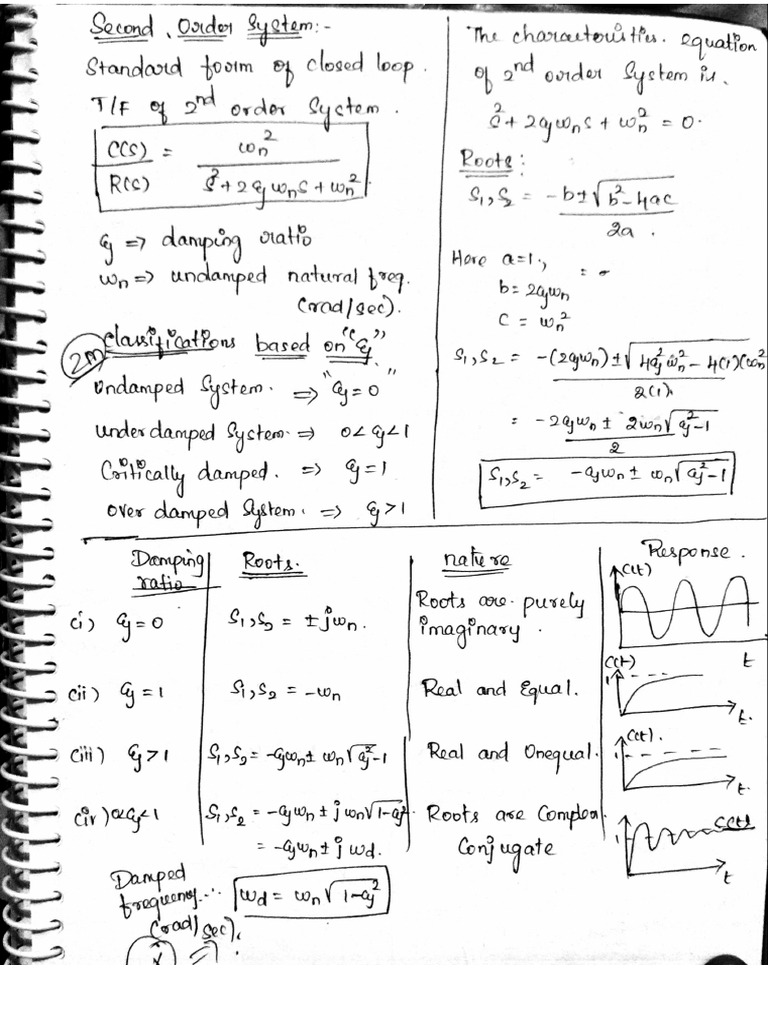 Second Order System:-
Standard form of closed loop.
T/F of 2nd order System.
C(s)/R(s) = ωn²/(s²+2ξωns+ωn²)
ξ => damping ratio
ωn => undamped natural freq.
(rad/sec).
2m
Classifications based on "ξ"
Undamped System. => "ξ=0"
Underdamped System => 0<ξ<1
Critically damped. => ξ=1
Over damped System. => ξ>1
The charactoristics. equation
of 2nd order System is.
s²+2ξωns+ωn²=0.
Roots:
S1,S2 = -b±√(b²-4ac)/2a.
Here a=1.,
b=2ξωn
c=ωn²
S1,S2 = -(2ξωn)±√(4ξ²ωn²-4(1)(ωn²))/2(1).
= -2ξωn ± 2ωn√(ξ²-1)/2
S1,S2 = -ξωn ± ωn√(ξ²-1)
Damping ratio Roots. nature Response.
(i) ξ=0 S1,S2 = ±jωn. Roots are purely imaginary. C(t) t
(ii) ξ=1 S1,S2 = -ωn Real and Equal. C(t) 1 t.
(iii) ξ>1 S1,S2 = -ξωn ± ωn√(ξ²-1) Real and Unequal. C(t). 1 t.
(iv) 0<ξ<1 S1,S2 = -ξωn ± jωn√(1-ξ²) Roots are Complex Conjugate C(t) 1 t
= -ξωn ± jωd.
Damped
frequency... ωd = ωn√(1-ξ²)
(rad/sec).